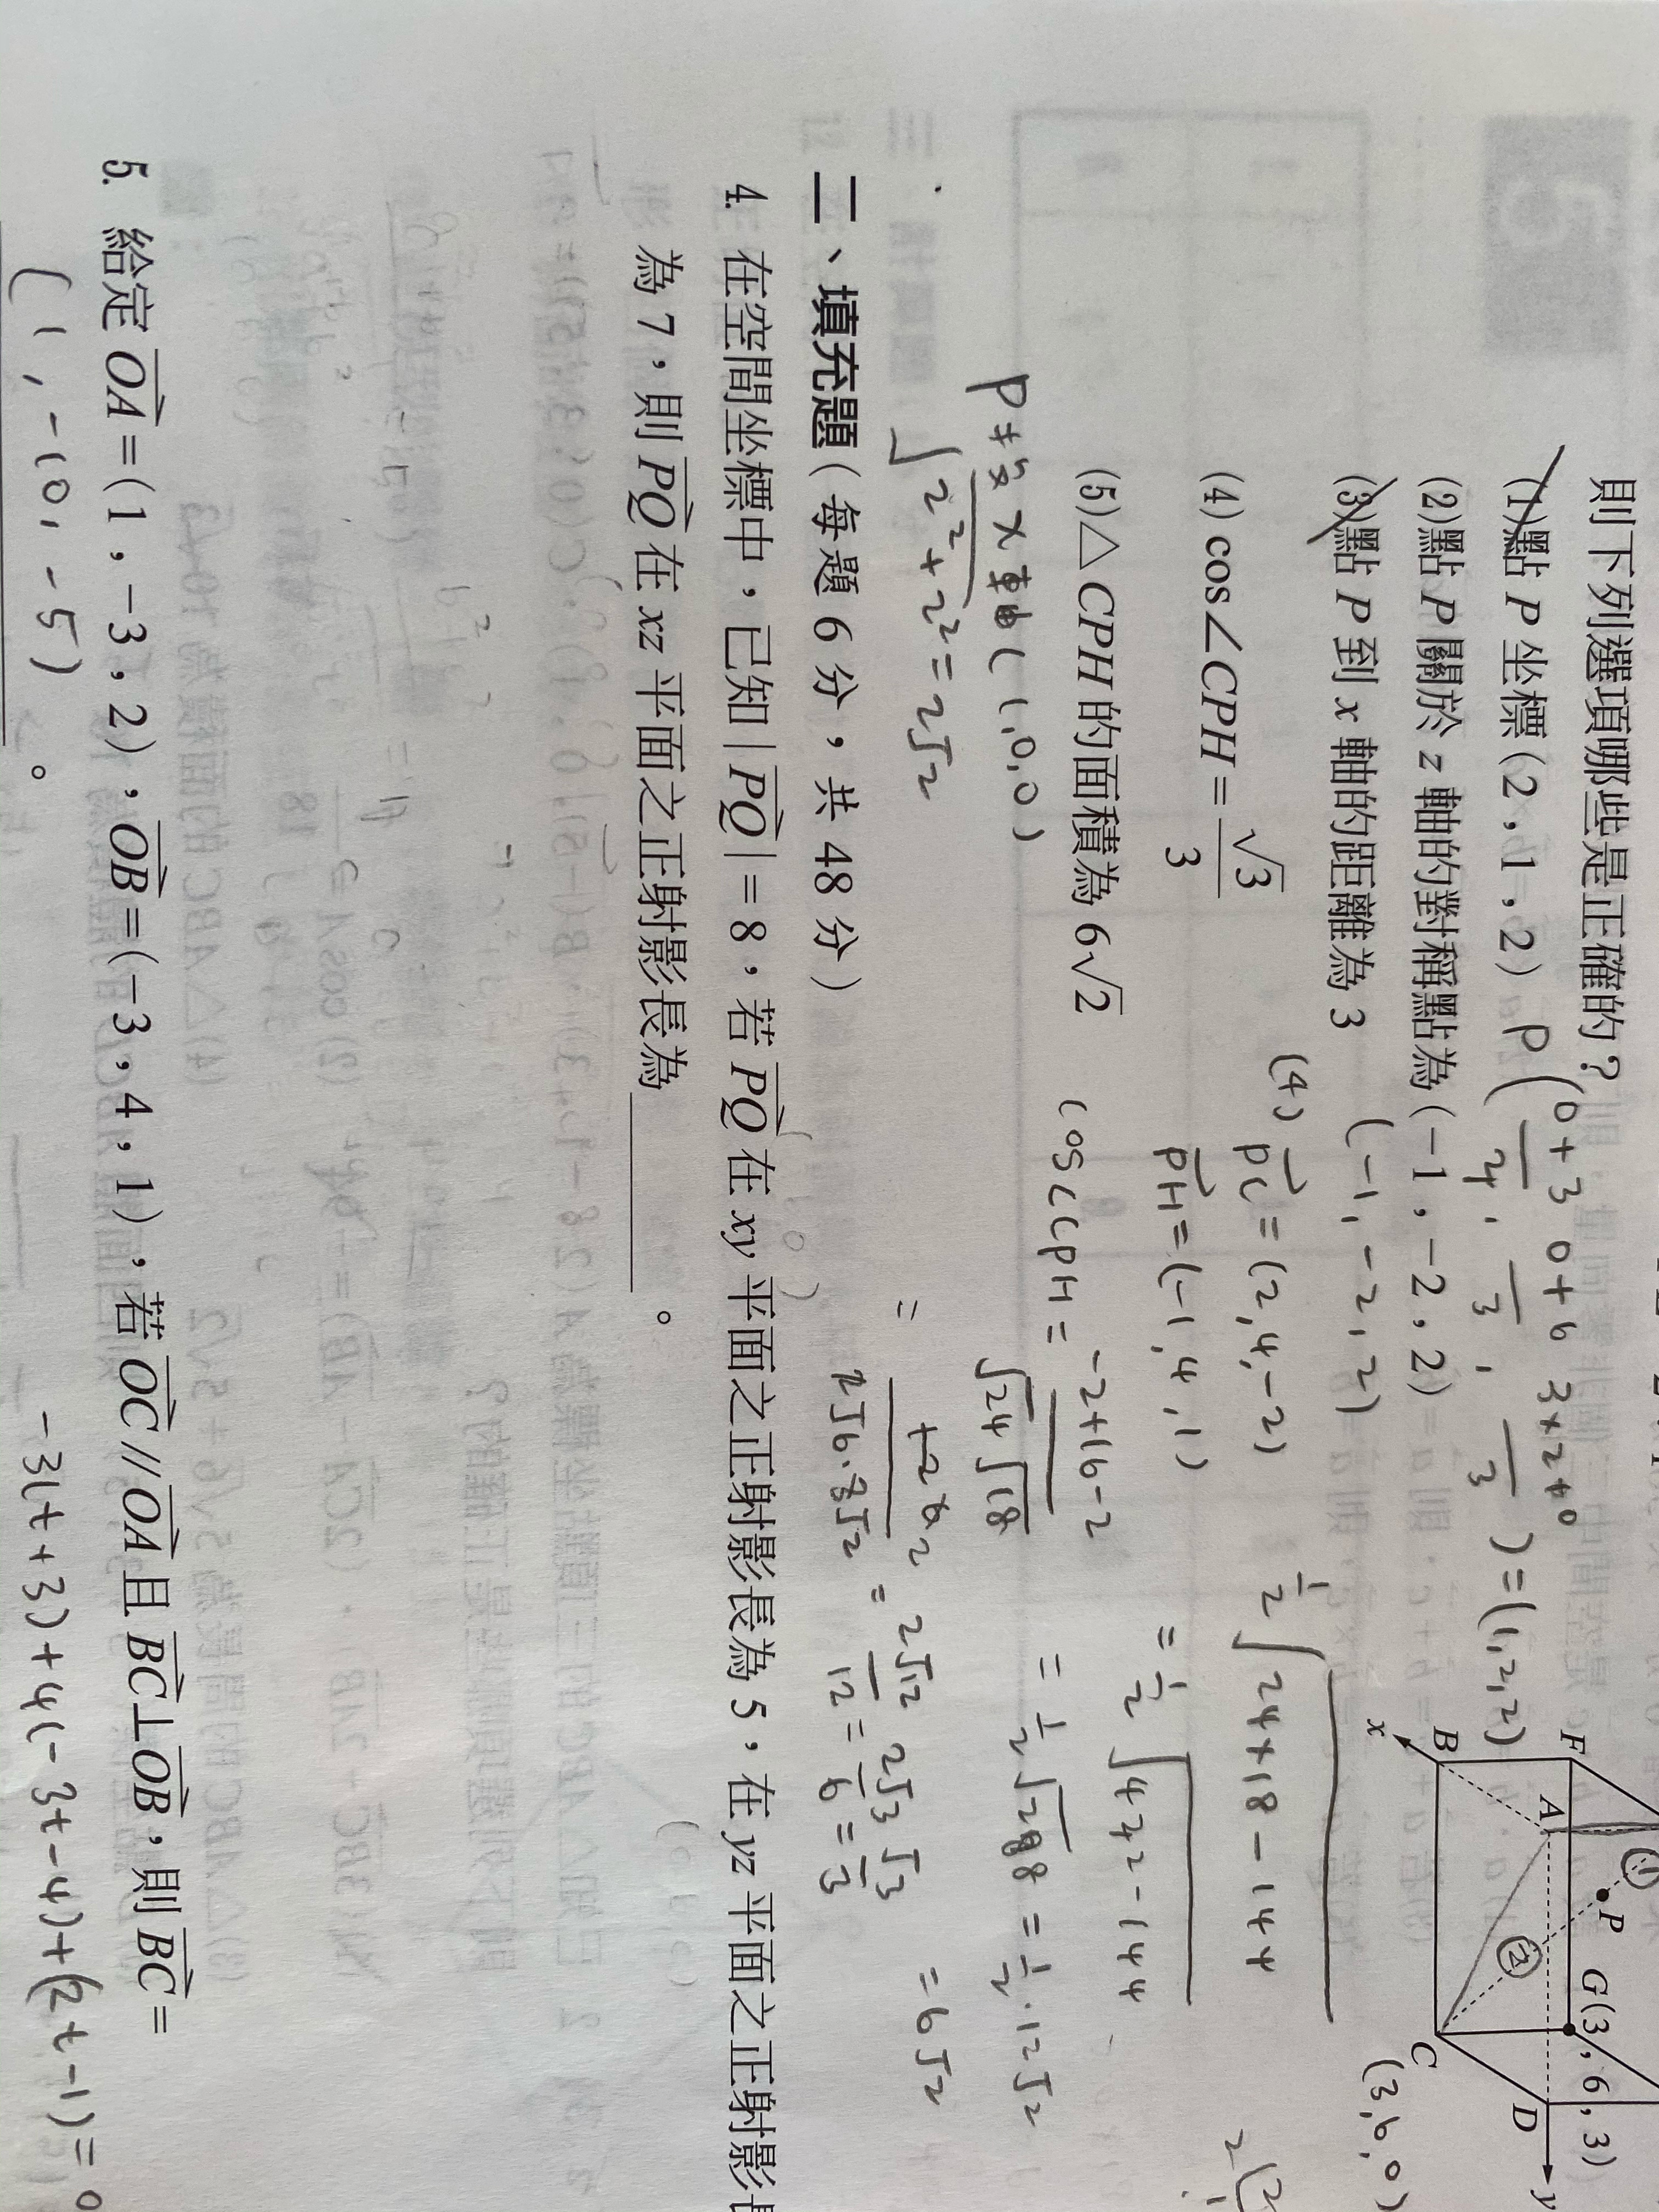 則下列選項哪些是正確的?
(1)點 P 坐標(2,1,2)
P(0+3/3, 0+6/3, 3×2+0/3)=(1,2,2)
(2)點 P 關於 z 軸的對稱點為(-1,-2,2)
(-1,-2,2)
(3)點 P 到 x 軸的距離為 3
(4) cos∠CPH = √3/3
(5)△CPH 的面積為 6√2
F
B
x
A
①
P
②
G(3,6,3)
C
D
y
(3,6,0)
(4) PC = (2,4,-2)
PH = (-1,4,1)
cos∠CPH = -2+16-2/√24√18
= 2√12/12 = 2√3/6 = √3/3
1/2√24×18-144
= 1/2√432-144
= 1/2√288 = 1/2·12√2
= 6√2
P 投 x 軸(1,0,0)
√2²+2² = 2√2
二、填充題(每題 6 分,共 48 分)
4. 在空間坐標中,已知|PQ|=8,若PQ在 xy 平面之正射影長為 5,在 yz 平面之正射影長
為 7,則PQ在 xz 平面之正射影長為______。
5. 給定OA=(1,-3,2),OB=(-3,4,1),若OC//OA且BC⊥OB,則BC=
(1,-10,-5)。
-3(t+3)+4(-3t-4)+(2t-1)=0